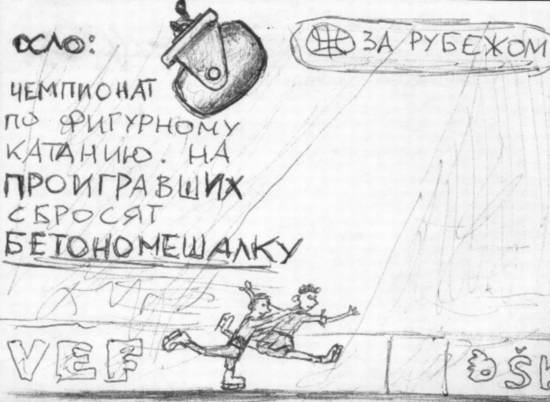 ОСЛО:
ЗА РУБЕЖОМ
ЧЕМПИОНАТ
ПО ФИГУРНОМУ
КАТАНИЮ. НА
ПРОИГРАВШИХ
СБРОСЯТ
БЕТОНОМЕШАЛКУ
VEF
ŠK